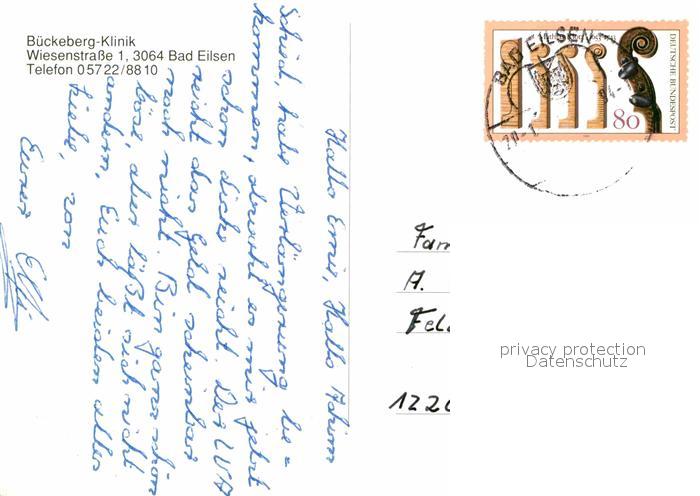 Bückeberg-Klinik
Wiesenstraße 1, 3064 Bad Eilsen
Telefon 05722/8810
Hallo Erni, Hallo Achim
Scheid, habe Verlängerung be=
kommen, obwohl es mir jetzt
schon nicht. Der LVA
reicht das Geld scheinbar
noch nicht. Bin ganz schön
böse, aber läßt sich nicht
ändern. Euch beiden alles
liebe, von
Eurer Elli
BAD EILSEN
DEUTSCHE BUNDESPOST
80
Fam
A.
Fel
122
privacy protection
Datenschutz